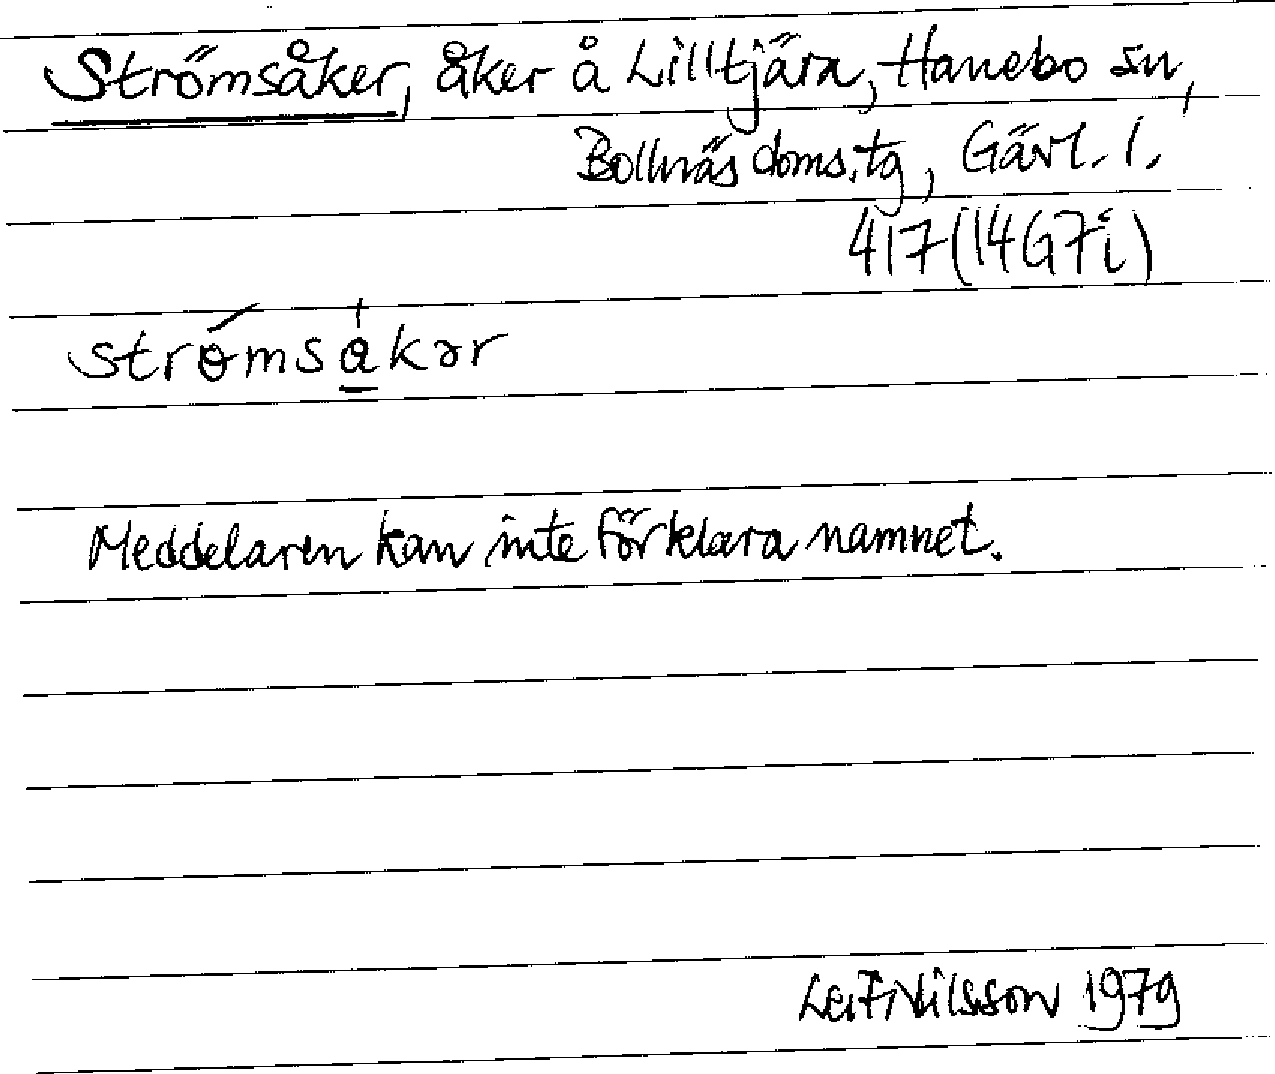 Strömsåker, åker å Lilltjära, Hanebo sn,
Bollnäs doms.tg, Gävl. l.
417 (14G7i)
strɵ́msåkər
Meddelaren kan inte förklara namnet.
Leif Nilsson 1979